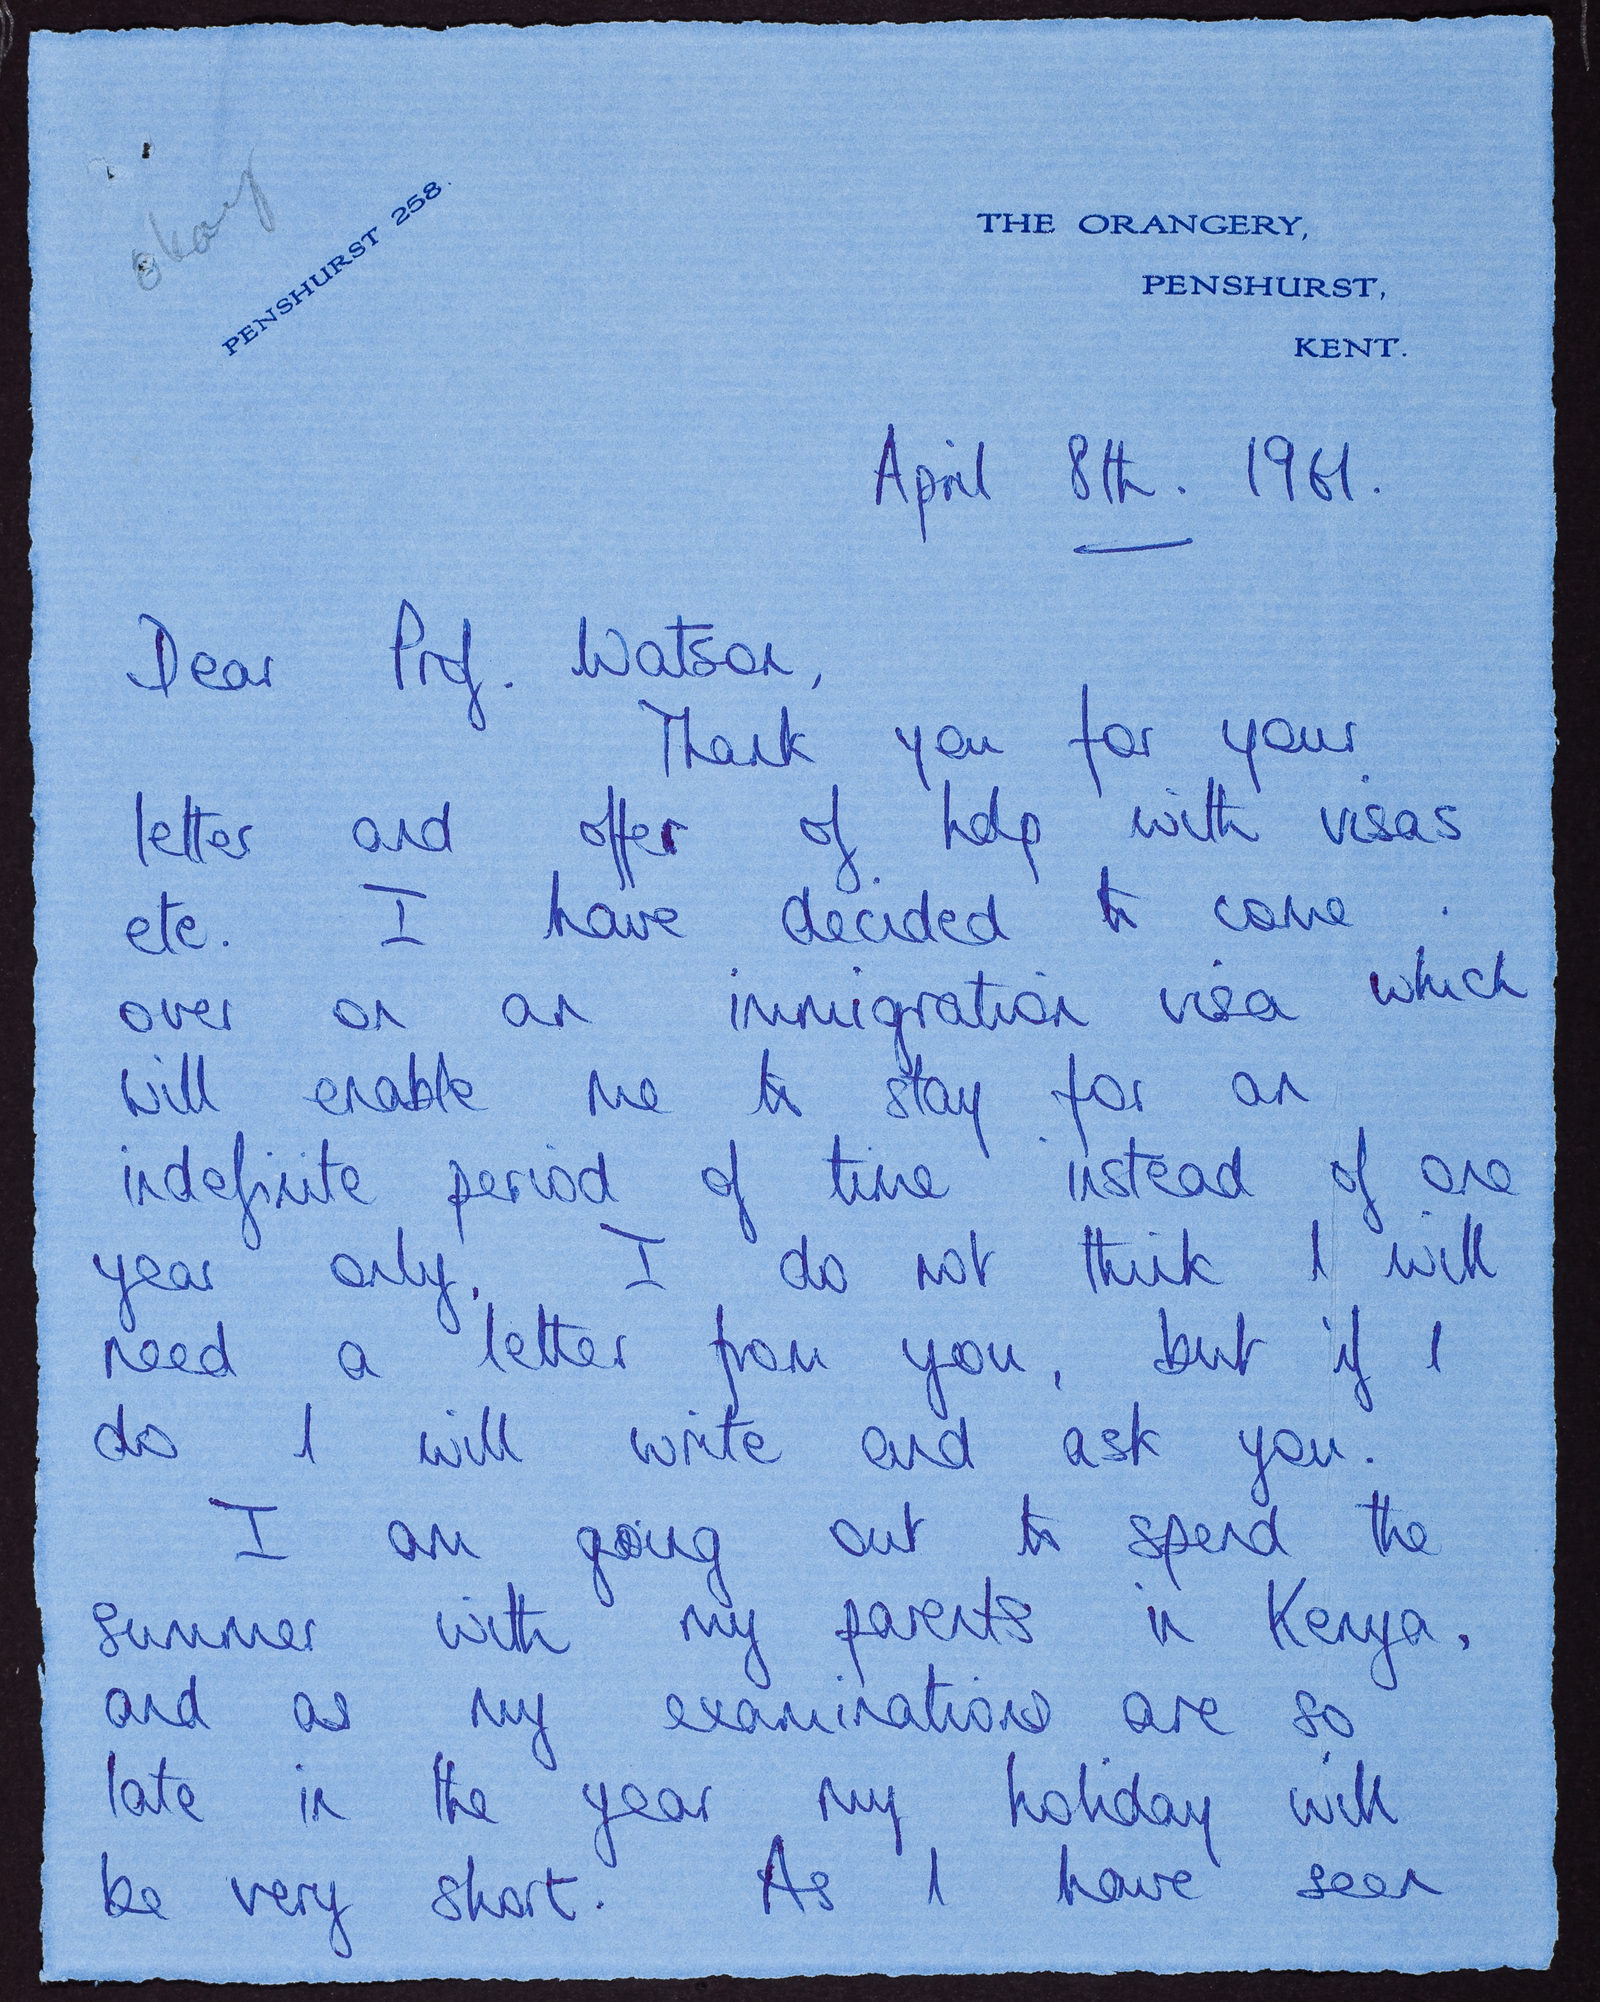 okay
PENSHURST 258.
THE ORANGERY,
PENSHURST,
KENT.
April 8th. 1961.
Dear Prof. Watson,
Thank you for your
letter and offer of help with visas
etc. I have decided to come
over on an immigration visa which
will enable me to stay for an
indefinite period of time instead of one
year only. I do not think I will
need a letter from you, but if I
do I will write and ask you.
I am going out to spend the
summer with my parents in Kenya,
and as my examinations are so
late in the year my holiday will
be very short. As I have seen